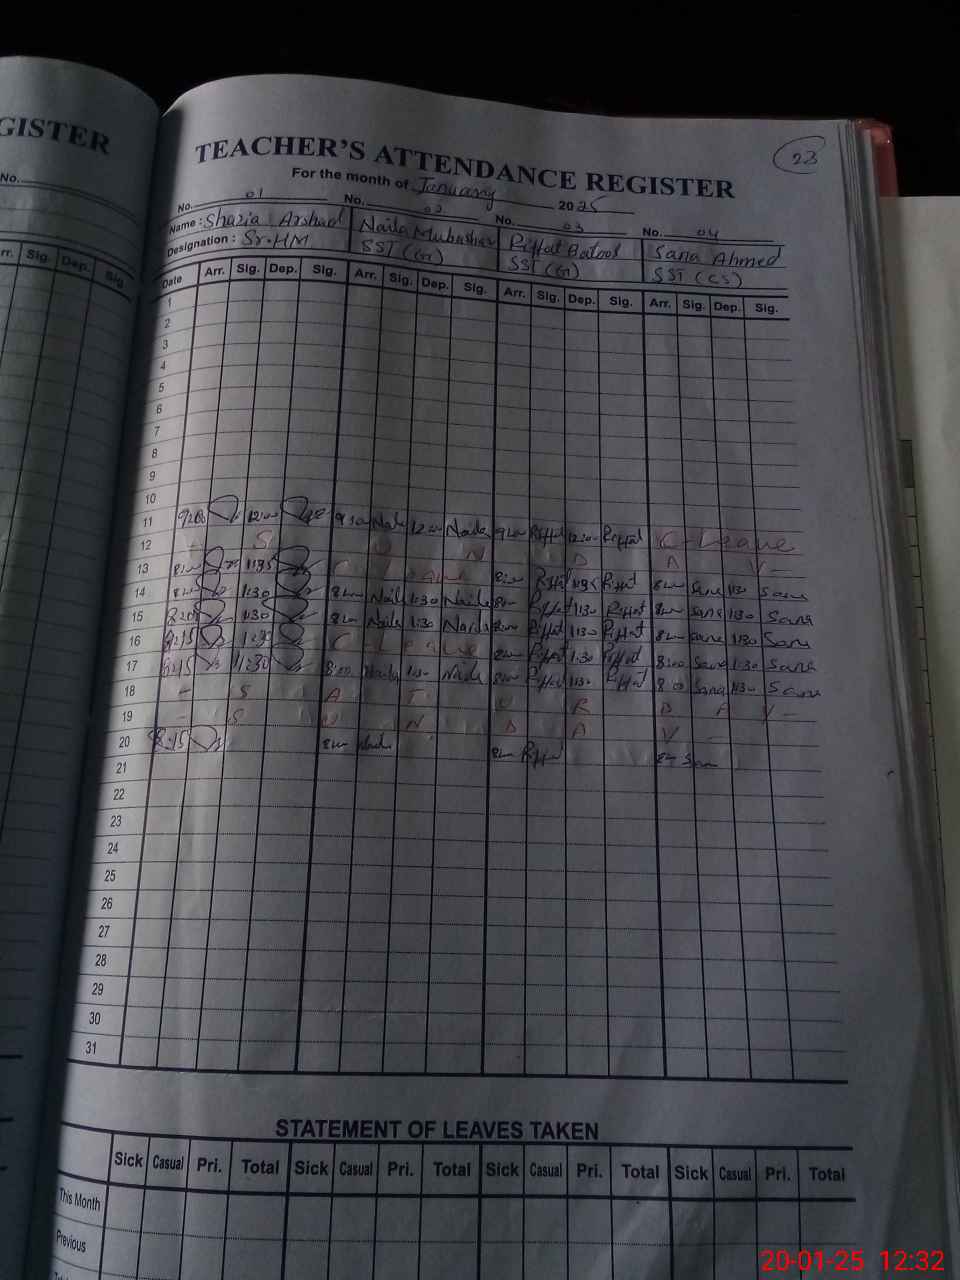 GISTER
TEACHER'S ATTENDANCE REGISTER
23
For the month of January 2025
No.
No. 01 No. 02 No. 03 No. 04
Name : Shazia Arshad Naila Mubashar Riffat Batool Sana Ahmed
Designation : Sr. HM SST (G) SST (G) SST (CS)
rr. Sig. Dep. Sig
Date Arr. Sig. Dep. Sig. Arr. Sig. Dep. Sig. Arr. Sig. Dep. Sig. Arr. Sig. Dep. Sig.
1
2
3
4
5
6
7
8
9
10
11 Naila Riffat Riffat C-Leave
12 S U N D A Y -
13 C Leave Riffat 1:35 Riffat Sana 1:30 Sana
14 1:30 Naila 1:30 Naila Riffat 1:30 Riffat Sana 1:30 Sana
15 8:20 1:30 Naila 1:30 Naila Riffat 1:30 Riffat Sana 1:30 Sana
16 8:15 1:35 C - Leave Riffat 1:30 Riffat 8:00 Sana 1:30 Sana
17 8:15 1:30 8:00 Naila 1:30 Naila Riffat 1:30 Riffat 8:00 Sana 1:30 Sana
18 - S A T U R D A Y -
19 - S U N D A Y -
20 8:15 Naila Riffat Sana
21
22
23
24
25
26
27
28
29
30
31
STATEMENT OF LEAVES TAKEN
Sick Casual Pri. Total Sick Casual Pri. Total Sick Casual Pri. Total Sick Casual Pri. Total
This Month
Previous
20-01-25 12:32